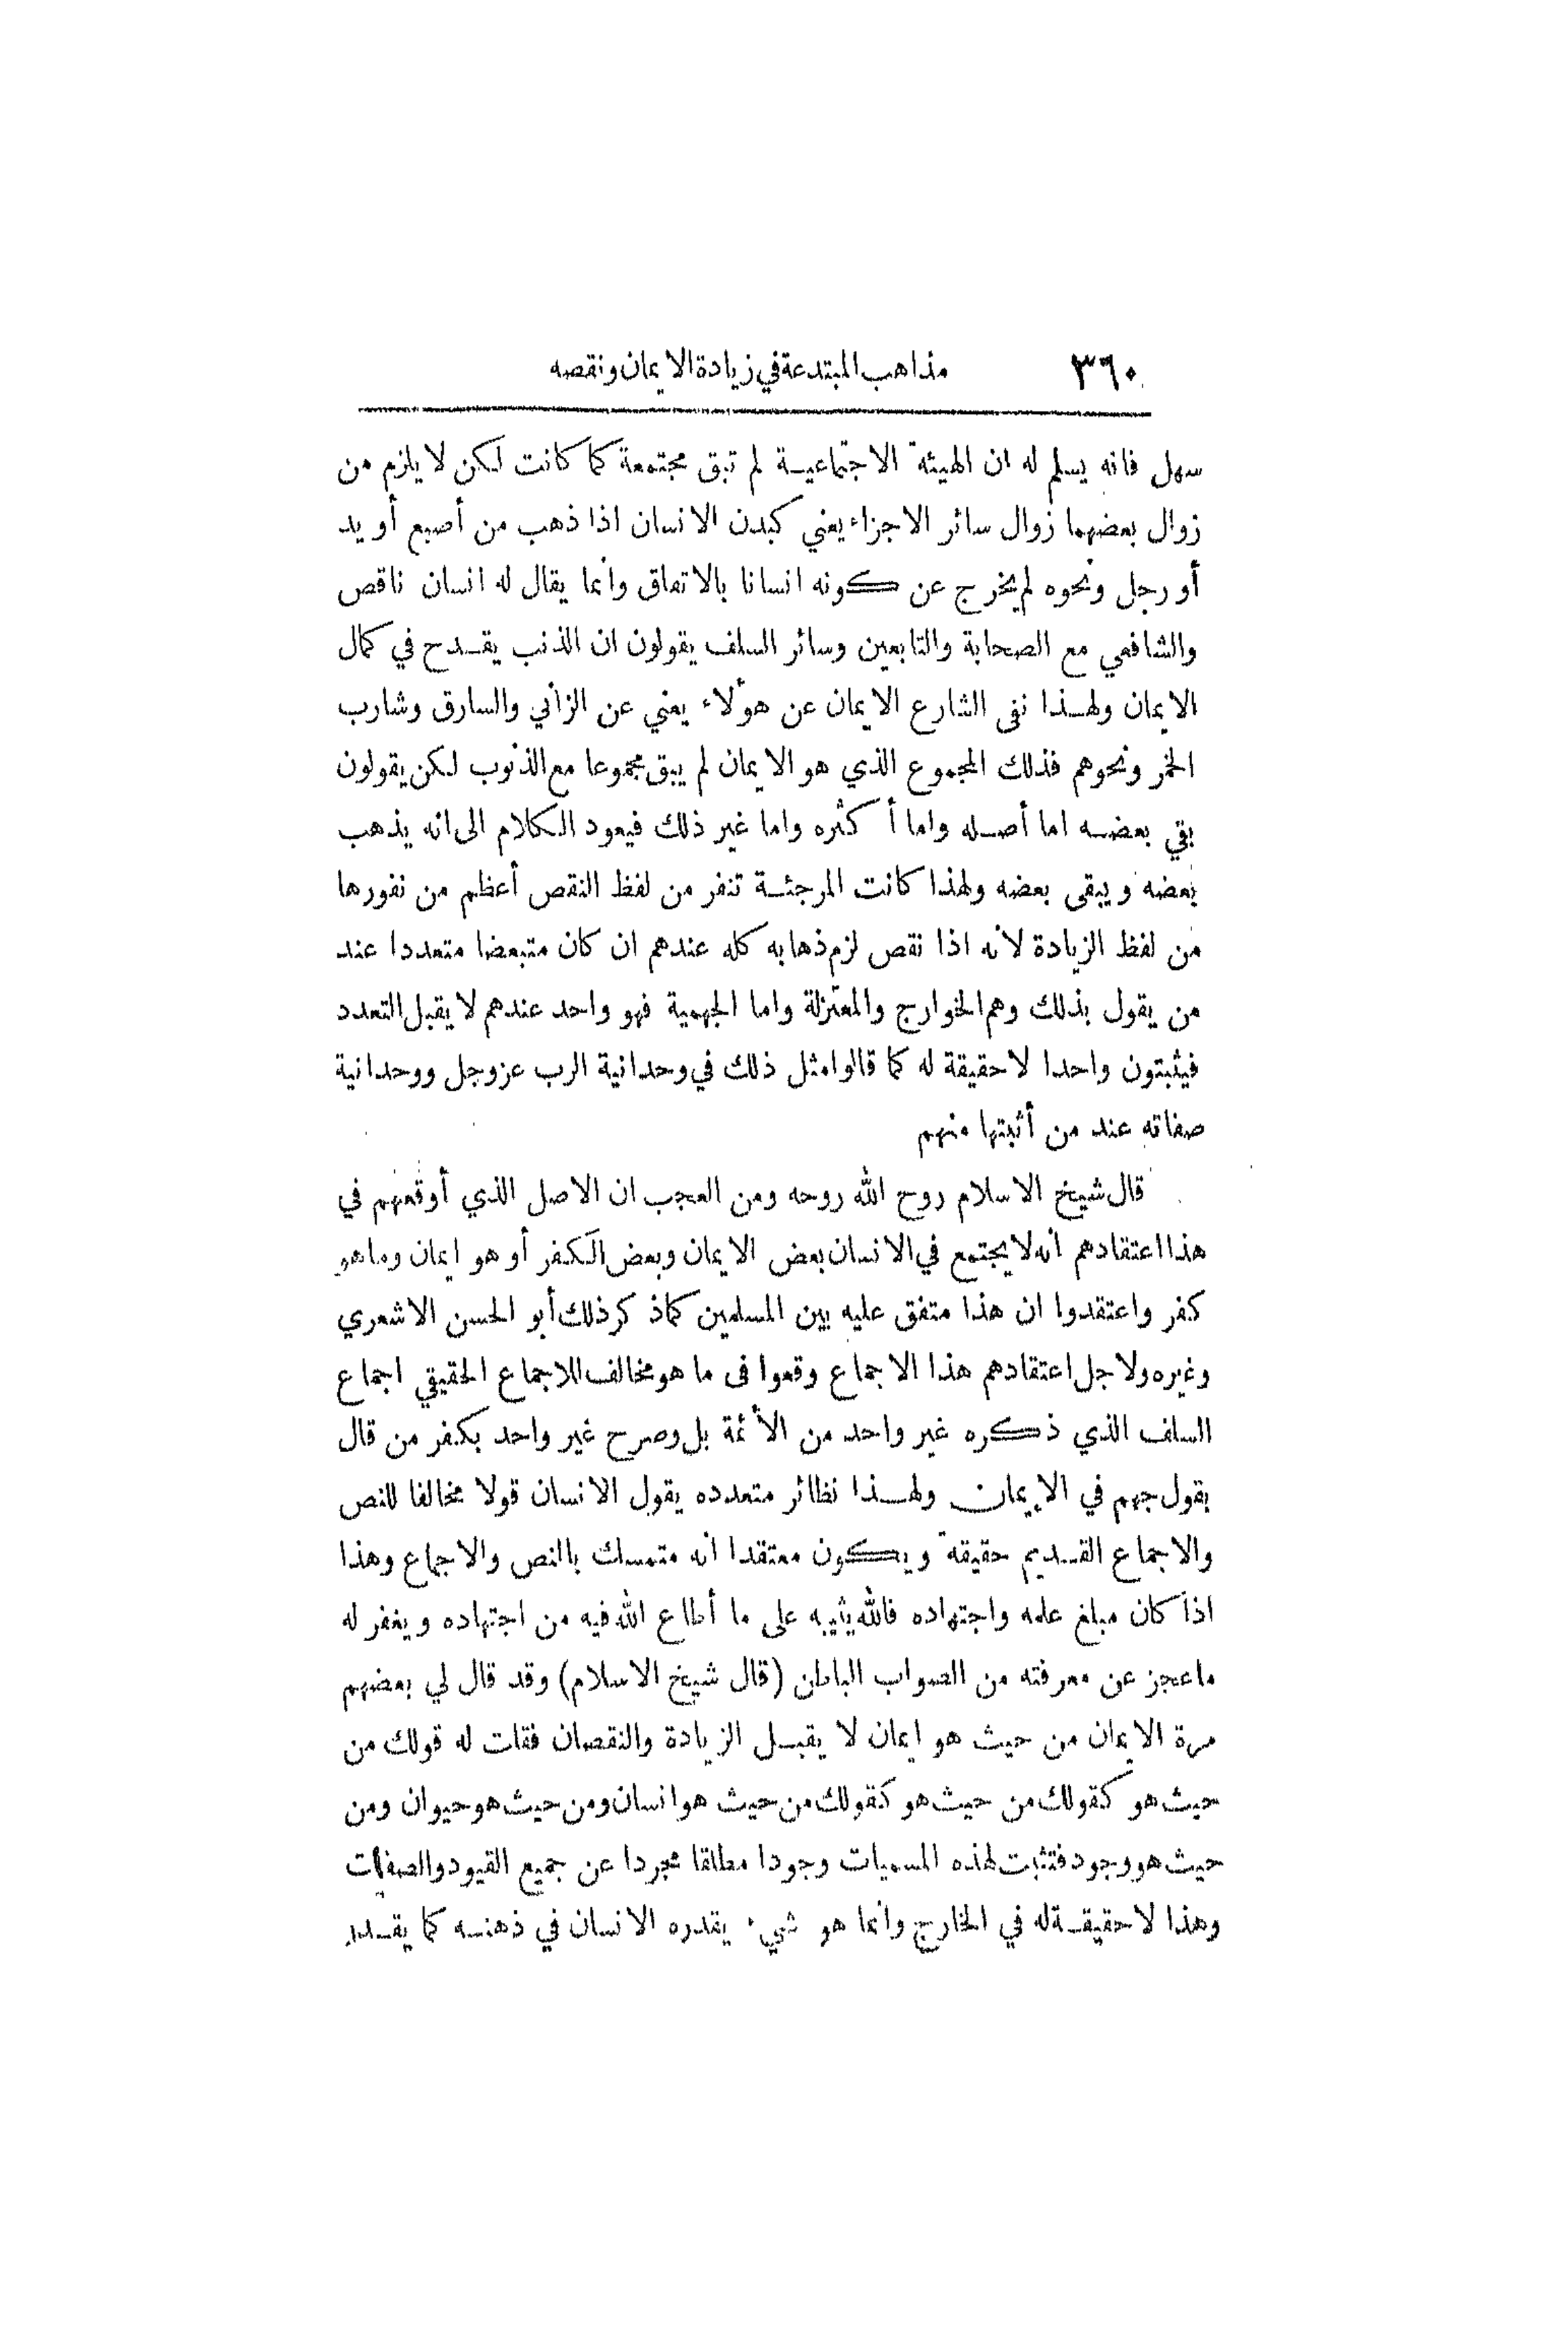 ٣٦٠ مذاهب المبتدعة في زيادة الايمان ونقصه
سهل فانه يسلم له ان الهيئة الاجتماعية لم تبق مجتمعة كما كانت لكن لا يلزم من
زوال بعضهما زوال سائر الاجزاء يعني كبدن الانسان اذا ذهب من أصبع أو يد
أو رجل ونحوه لم يخرج عن كونه انسانا بالاتفاق وانما يقال له انسان ناقص
والشافعي مع الصحابة والتابعين وسائر السلف يقولون ان الذنب يقدح في كمال
الايمان ولهذا نفى الشارع الايمان عن هؤلاء يعني عن الزاني والسارق وشارب
الخمر ونحوهم فذلك المجموع الذي هو الايمان لم يبق مجموعا مع الذنوب لكن يقولون
بقي بعضه اما أصله واما أكثره واما غير ذلك فيعود الكلام الى انه يذهب
بعضه ويبقى بعضه ولهذا كانت المرجئة تنفر من لفظ النقص أعظم من نفورها
من لفظ الزيادة لانه اذا نقص لزم ذهابه كله عندهم ان كان متبعضا متعددا عند
من يقول بذلك وهم الخوارج والمعتزلة واما الجهمية فهو واحد عندهم لا يقبل التعدد
فيثبتون واحدا لا حقيقة له كما قالوا مثل ذلك في وحدانية الرب عز وجل ووحدانية
صفاته عند من أثبتها منهم
قال شيخ الاسلام روح الله روحه ومن العجب ان الاصل الذي أوقعهم في
هذا اعتقادهم انه لا يجتمع في الانسان بعض الايمان وبعض الكفر أو هو ايمان وما هو
كفر واعتقدوا ان هذا متفق عليه بين المسلمين كما ذكر ذلك أبو الحسن الاشعري
وغيره ولاجل اعتقادهم هذا الاجماع وقعوا فى ما هو مخالف للاجماع الحقيقي اجماع
السلف الذي ذكره غير واحد من الأئمة بل وصرح غير واحد بكفر من قال
بقول جهم في الايمان ولهذا نظائر متعدده يقول الانسان قولا مخالفا للنص
والاجماع القديم حقيقة ويكون معتقدا انه متمسك بالنص والاجماع وهذا
اذا كان مبلغ علمه واجتهاده فالله يثيبه على ما أطاع الله فيه من اجتهاده ويغفر له
ما عجز عن معرفته من الصواب الباطن (قال شيخ الاسلام) وقد قال لي بعضهم
مرة الايمان من حيث هو ايمان لا يقبل الزيادة والنقصان فقلت له قولك من
حيث هو كقولك من حيث هو كقولك من حيث هو انسان ومن حيث هو حيوان ومن
حيث هو وجود فتثبت لهذه المسميات وجودا مطلقا مجردا عن جميع القيود والصفات
وهذا لا حقيقة له في الخارج وانما هو شيء يقدره الانسان في ذهنه كما يقدر